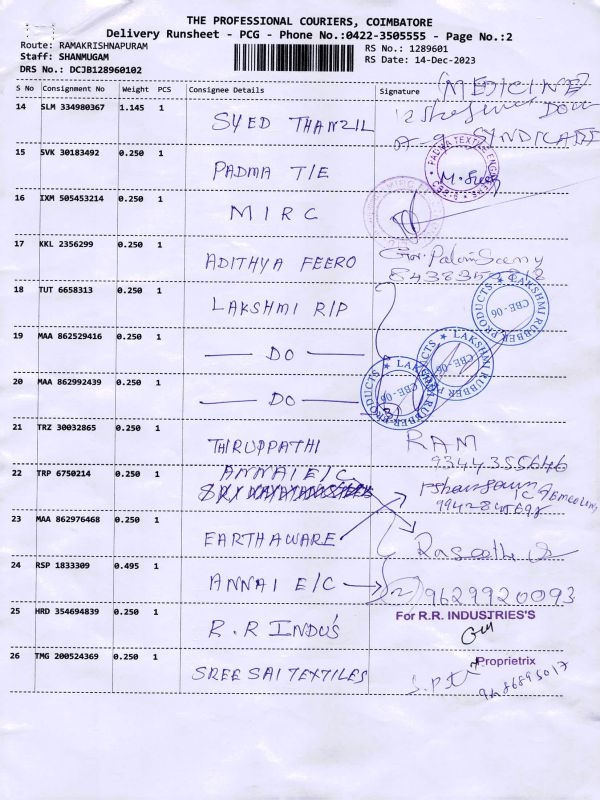 THE PROFESSIONAL COURIERS, COIMBATORE
Delivery Runsheet - PCG - Phone No.:0422-3505555 - Page No.:2
Route: RAMAKRISHNAPURAM
Staff: SHANMUGAM
DRS No.: DCJB128960102
RS No.: 1289601
RS Date: 14-Dec-2023
S No Consignment No Weight PCS Consignee Details Signature
(MEDICINE)
14 SLM 334980367 1.145 1 SYED THANZIL
SYNDICATE
15 SVK 30183492 0.250 1 PADMA T/E
PADMA TEXTILE ENGINEERS
16 IXM 505453214 0.250 1 MIRC
17 KKL 2356299 0.250 1 ADITHYA FEERO
18 TUT 6658313 0.250 1 LAKSHMI R/P
LAKSHMI RUBBER PRODUCTS CBE-06
19 MAA 862529416 0.250 1 DO
LAKSHMI RUBBER PRODUCTS CBE-06
20 MAA 862992439 0.250 1 DO
LAKSHMI RUBBER PRODUCTS CBE-06
21 TRZ 30032865 0.250 1 THIRUPPATHI RAM
9344355646
22 TRP 6750214 0.250 1 ANNAI E/C
23 MAA 862976468 0.250 1 EARTHAWARE
24 RSP 1833309 0.495 1 ANNAI E/C (2) 9629920093
25 HRD 354694839 0.250 1 R.R INDUS
For R.R. INDUSTRIES'S
26 TMG 200524369 0.250 1 SREE SAI TEXTILES
Proprietrix